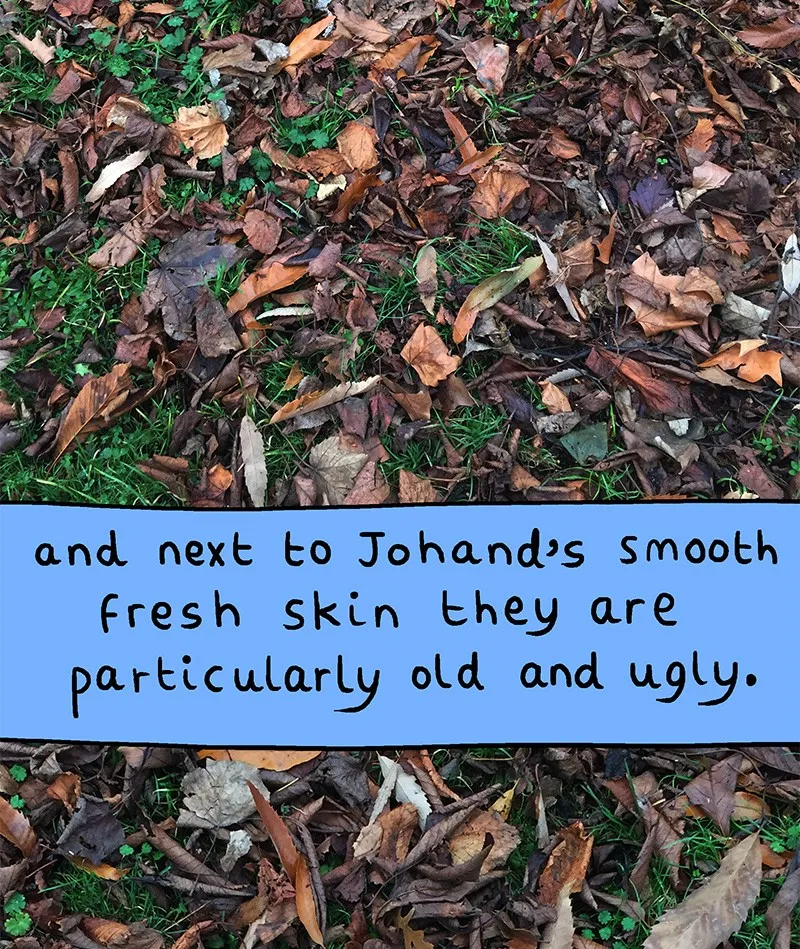 and next to Johand's smooth
fresh skin they are
particularly old and ugly.